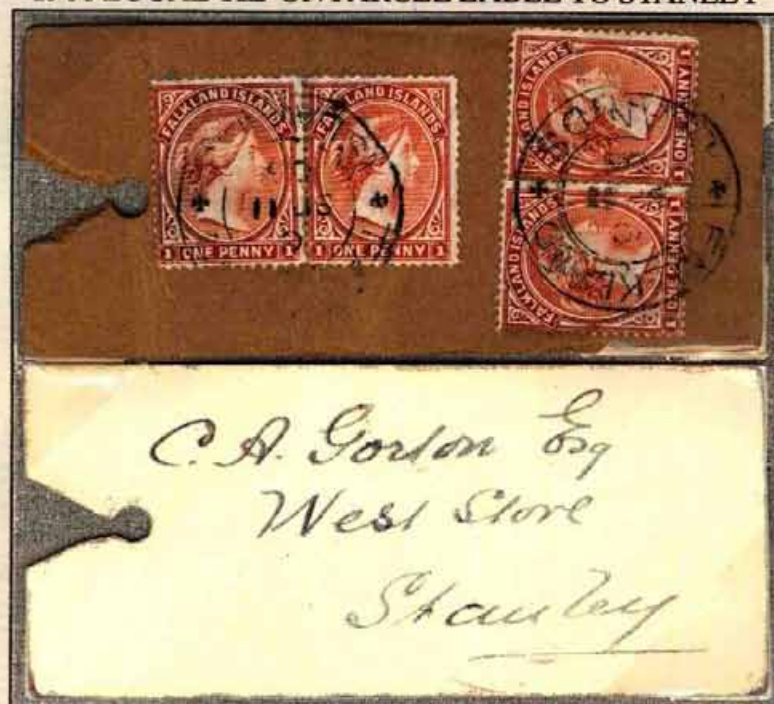 ON PARCEL LABEL TO STANLEY
FALKLAND ISLANDS
1 ONE PENNY 1
FALKLAND ISLANDS
1 ONE PENNY 1
FALKLAND ISLANDS
1 ONE PENNY 1
FALKLAND ISLANDS
1 ONE PENNY 1
C. A. Gorton Esq
West Store
Stanley